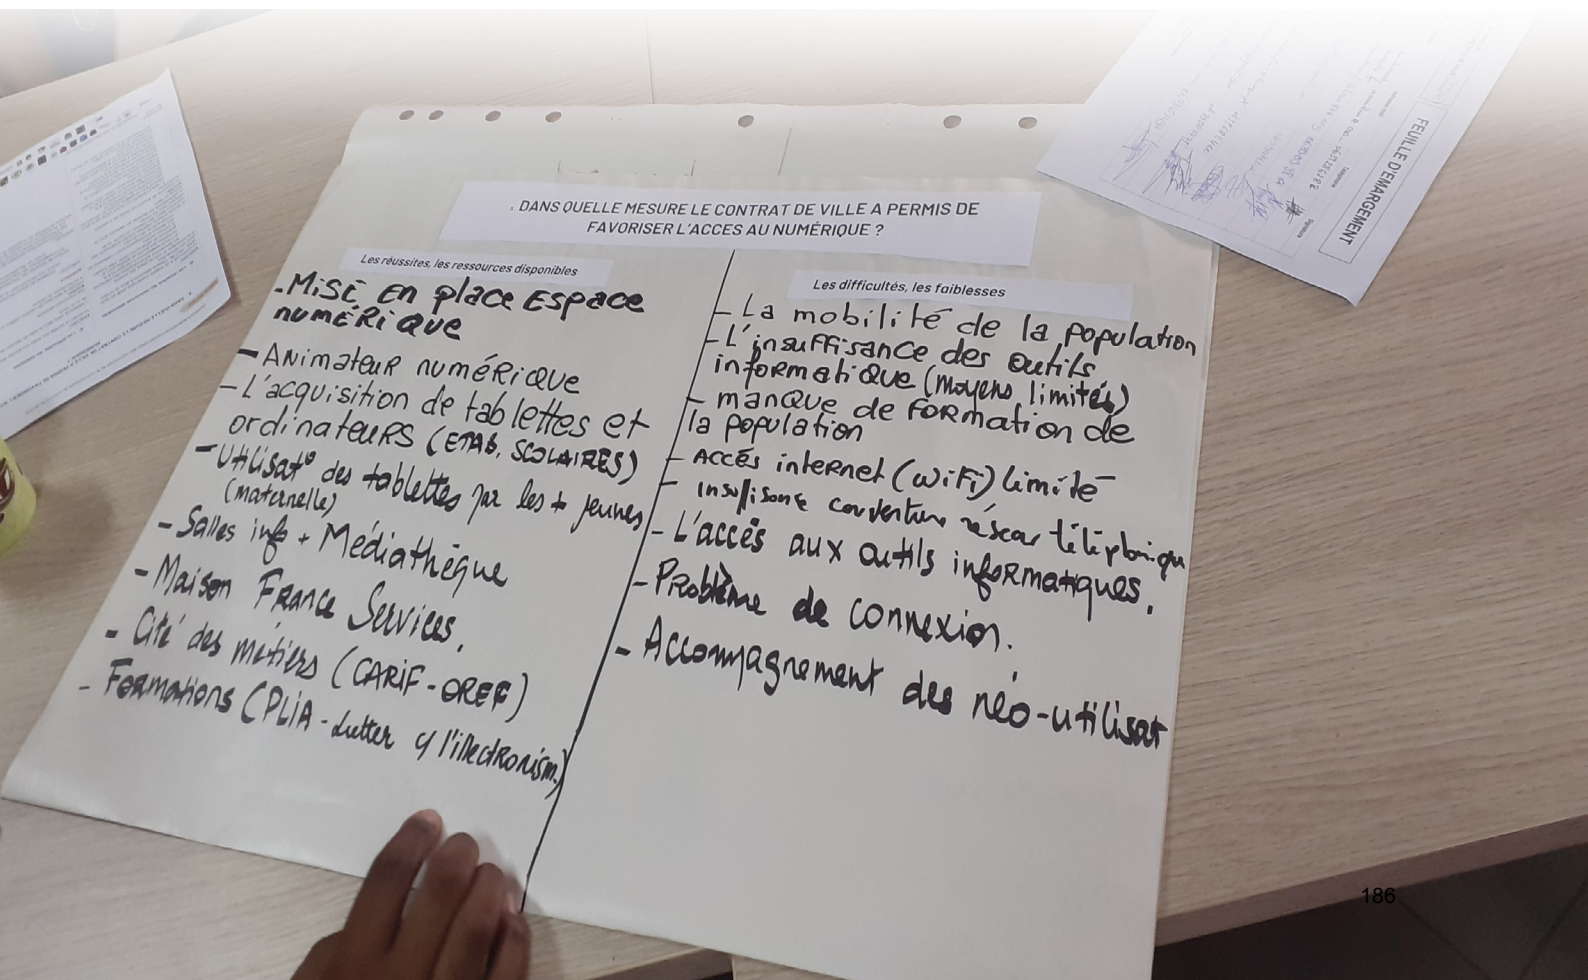 . DANS QUELLE MESURE LE CONTRAT DE VILLE A PERMIS DE
FAVORISER L'ACCES AU NUMÉRIQUE ?
Les réussites, les ressources disponibles
- MiSE En place Espace
numÉRiQUE
- ANimateuR numéRiQUE
- L'acquisition de tablettes et
ordinateuRS (ETAB. SCOLAIRES)
- Utilisat° des tablettes par les + jeunes
(maternelle)
- Salles info + Médiathèque
- Maison FRance Services.
- Cité des métiers (CARIF-OREF)
- FoRmations (PLIA - Lutter c/ l'illectronism.)
Les difficultés, les faiblesses
- La mobilité de la population
- L'insuffisance des outils
informatiQue (moyens limités)
- manQue de foRmation de
la population
- Accés inteRnet (wiFi) limité
- Insuffisance couverture réseau téléphonique
- L'accés aux outils infoRmatiques.
- PRoblème de connexion.
- Accompagnement des néo-utilisat
FEUILLE D'EMARGEMENT
Téléphone
Signature
186